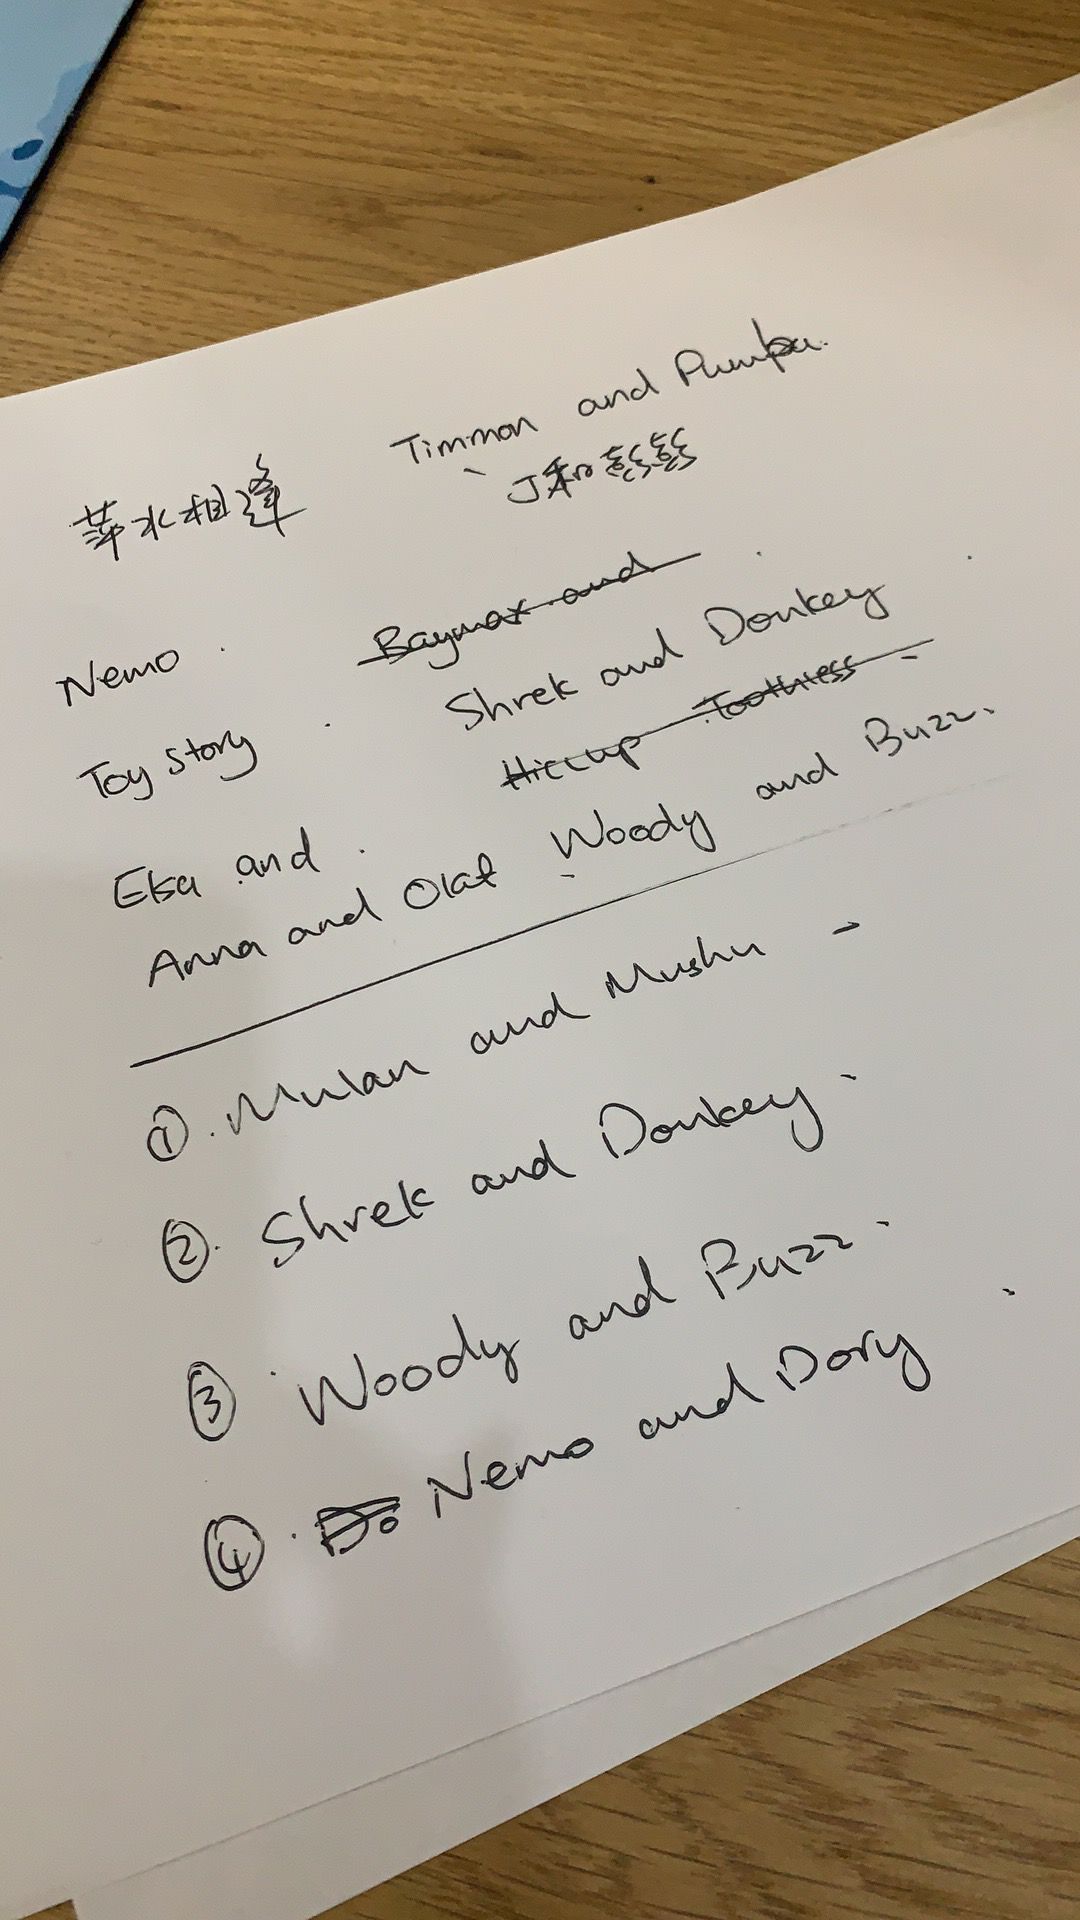 Timmon and Pumba.
萍水相逢
J和彭彭
Baymax and
Nemo
Shrek and Donkey
Toy Story
Hiccup Toothless
Elsa and
Woody and Buzz.
Anna and Olaf
① Mulan and Mushu
② Shrek and Donkey
③ Woody and Buzz
④ Nemo and Dory